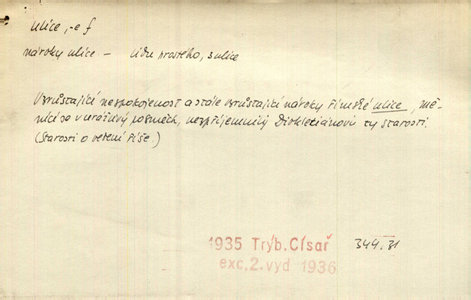 ulice, -e f
nároky ulice – lidu prostého, z ulice
Vzrůstající nespokojenost a stále vzrůstající nároky římské ulice, mě-
nící se v urážlivý posměch, nezpříjemnily Diokletiánovi ty starosti.
(Starosti o vedení říše.)
1935 Tryb. Císař 344.31
exc. 2. vyd 1936